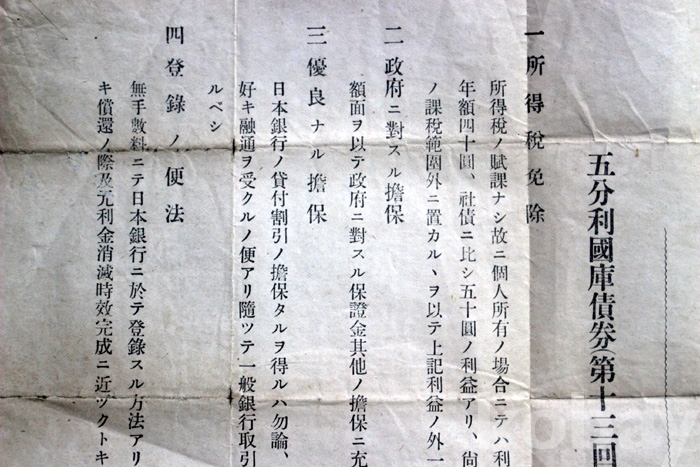 五分利國庫債券(第十三回
一所得税免除
所得税ノ賦課ナシ故ニ個人所有ノ場合ニテハ利
年額四十圓、社債ニ比シ五十圓ノ利益アリ、尙
ノ課税範圍外ニ置カルヽヲ以テ上記利益ノ外一
二政府ニ對スル擔保
額面ヲ以テ政府ニ對スル保證金其他ノ擔保ニ充
三優良ナル擔保
日本銀行ノ貸付割引ノ擔保タルヲ得ルハ勿論、
好キ融通ヲ受クルノ便アリ隨ツテ一般銀行取引
ルベシ
四登錄ノ便法
無手數料ニテ日本銀行ニ於テ登錄スル方法アリ
キ償還ノ際及元利金消滅時效完成ニ近ヅクトキ